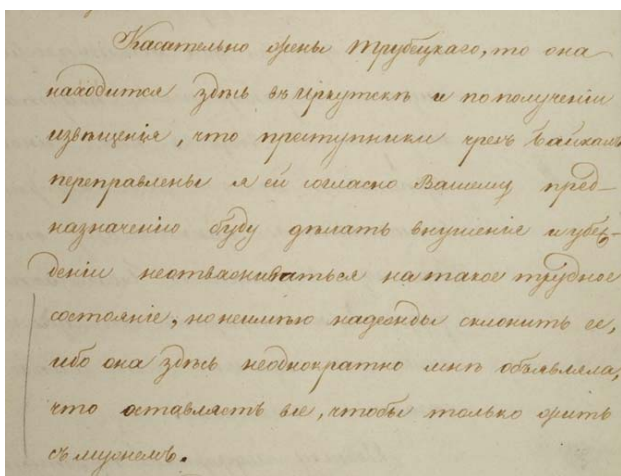 Касательно жены Трубецкаго, то она
находится здѣсь въ Иркутскѣ и по получении
извѣщенiя, что преступники чрезъ Байкалъ
переправлены я ей согласно Вашему пред-
назначенiю буду дѣлать внушенiе и убѣж-
денiи неотваживаться на такое трудное
состоянiе, но неимѣю надежды склонить ее,
ибо она здѣсь неоднократно мнѣ объявляла,
что оставляетъ все, чтобы только жить
съ мужемъ.